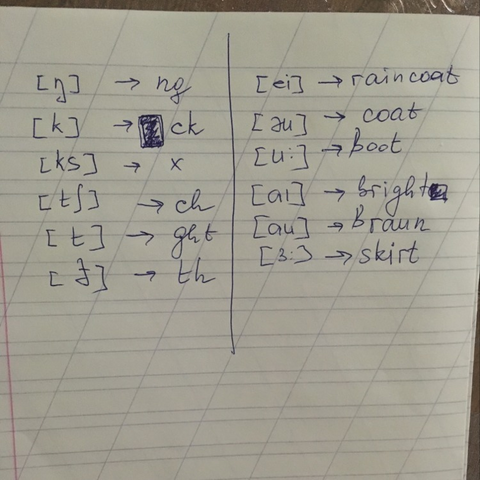 [ŋ] → ng
[k] → ck
[ks] → x
[tʃ] → ch
[t] → ght
[ʒ] → th
[ei] → raincoat
[əu] → coat
[u:] → boot
[ai] → bright
[au] → Braun
[ɜ:] → skirt